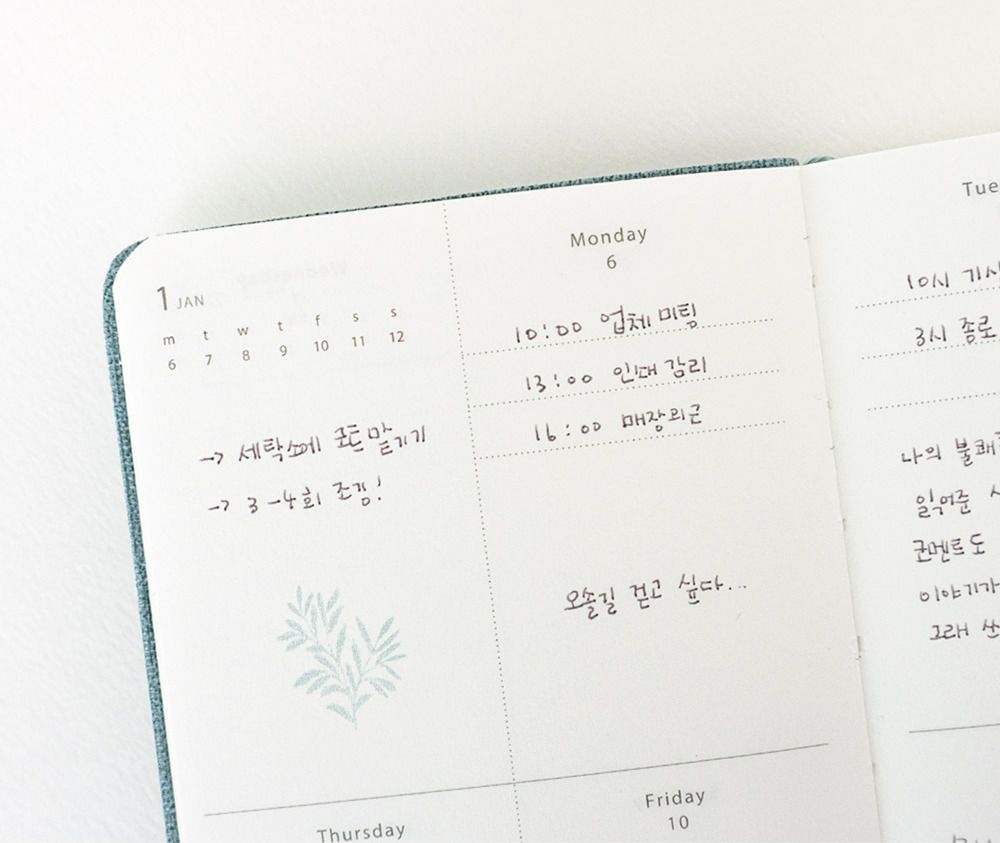 1 JAN
m t w t f s s
6 7 8 9 10 11 12
→ 세탁소에 코트 맡기기
→ 3-4회 조깅!
Monday
6
10:00 업체미팅
13:00 인쇄감리
16:00 매장퇴근
오솔길 걷고 싶다...
Thursday
Friday
10
Tue
10시
3시 종로
나의
읽어준
코멘트도
이야기가
그래